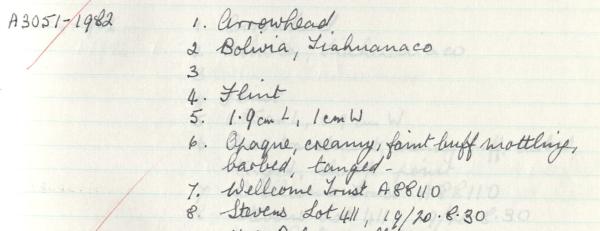 A3051-1982 1. Arrowhead
2 Bolivia, Tiahuanaco
3
4. Flint
5. 1.9cm L, 1cm W
6. Opaque, creamy, faint buff mottling,
barbed, tanged -
7. Wellcome Trust A88110
8. Stevens Lot 411, 19/20.8.30